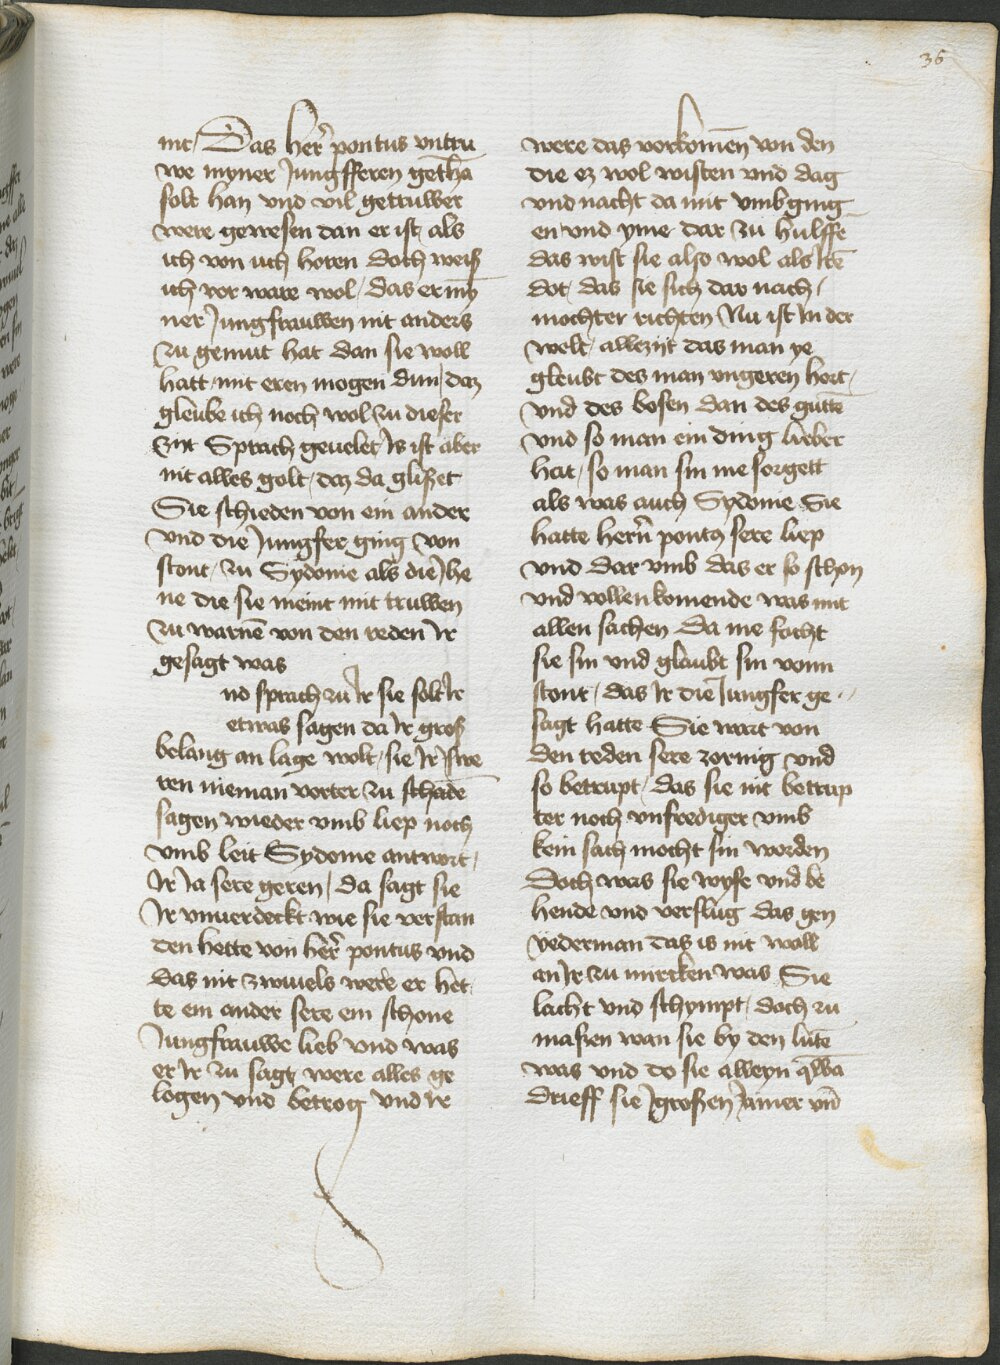 36
nit / Das her̃ pontus vntru
we myner Jungfferen getha̅
solt han vnd vil getruwer
were gewesen dan er ist / als
ich von uch horen doch weiß
ich vor ware wol / das er my̅
ner Jungfrauwen nit anders
zu gemut hat dan sie woll
hatt / mit eren mogen dun / daz
gleube ich noch wol zu dieser
zijt Sprach geuelet Js ist aber
nit alles golt / daz da glißet
Sie schieden von ein ander
vnd die Jungfer ging von
stont / zu Sydonie als die Jhe
ne die sie meint mit truwen
zu warne̅ von den reden Jr
gesagt was
nd sprach zu Jr sie solt Jr
etwas sagen da Jr groß
belang an lage wolt / sie Jr swe
ren nieman vorter zu schade̅
sagen wieder vmb liep noch
vmb leit Sydonie antwort /
Jr Ja sere geren / da sagt sie
Jr vnuerdeckt wie sie verstan
den hette von her̃ pontus vnd
das nit zwiuels were er het
te ein ander sere ein schone
Jungfrauwe lieb vnd was
er Jr zu sagt were alles ge
logen vnd betrog vnd Jr
were das vorkome̅n von den
die ez wol wisten vnd dag
vnd nacht da mit vmbging
en vnd yme dar zu hulffe
das wist sie also wol als Jre̅
dot / das sie sich dar nach /
mochter richten Nu ist Jn der
welt / allezijt das man ye
gleubt des man vngeren hort /
vnd des bosen dan des gutte̅
vnd so man ein ding lieber
hat / so man sin me sorgett
als was auch Sydonie Sie
hatte hern̅ pontus sere liep
vnd dar vmb das er so schon
vnd vollenkomende was mit
allen sachen Da me focht
sie sin vnd glaubt sin vonn
stont / das Jr die Jungfer ge
sagt hatte Sie wart von
den reden sere zornig vnd
so betrupt / das sie nit betrup
ter noch vnfrediger vmb
kein sach mocht sin worden
Doch was sie wyse vnd be
hende vnd verflug das gen
yederman das is nit woll
an Jr zu mircken was Sie
lacht vnd schympt / doch zu
maßen wan sie by den lute̅
was vnd do sie alleyn qwa̅
drieff sie Jgroßen Jamer vn̅